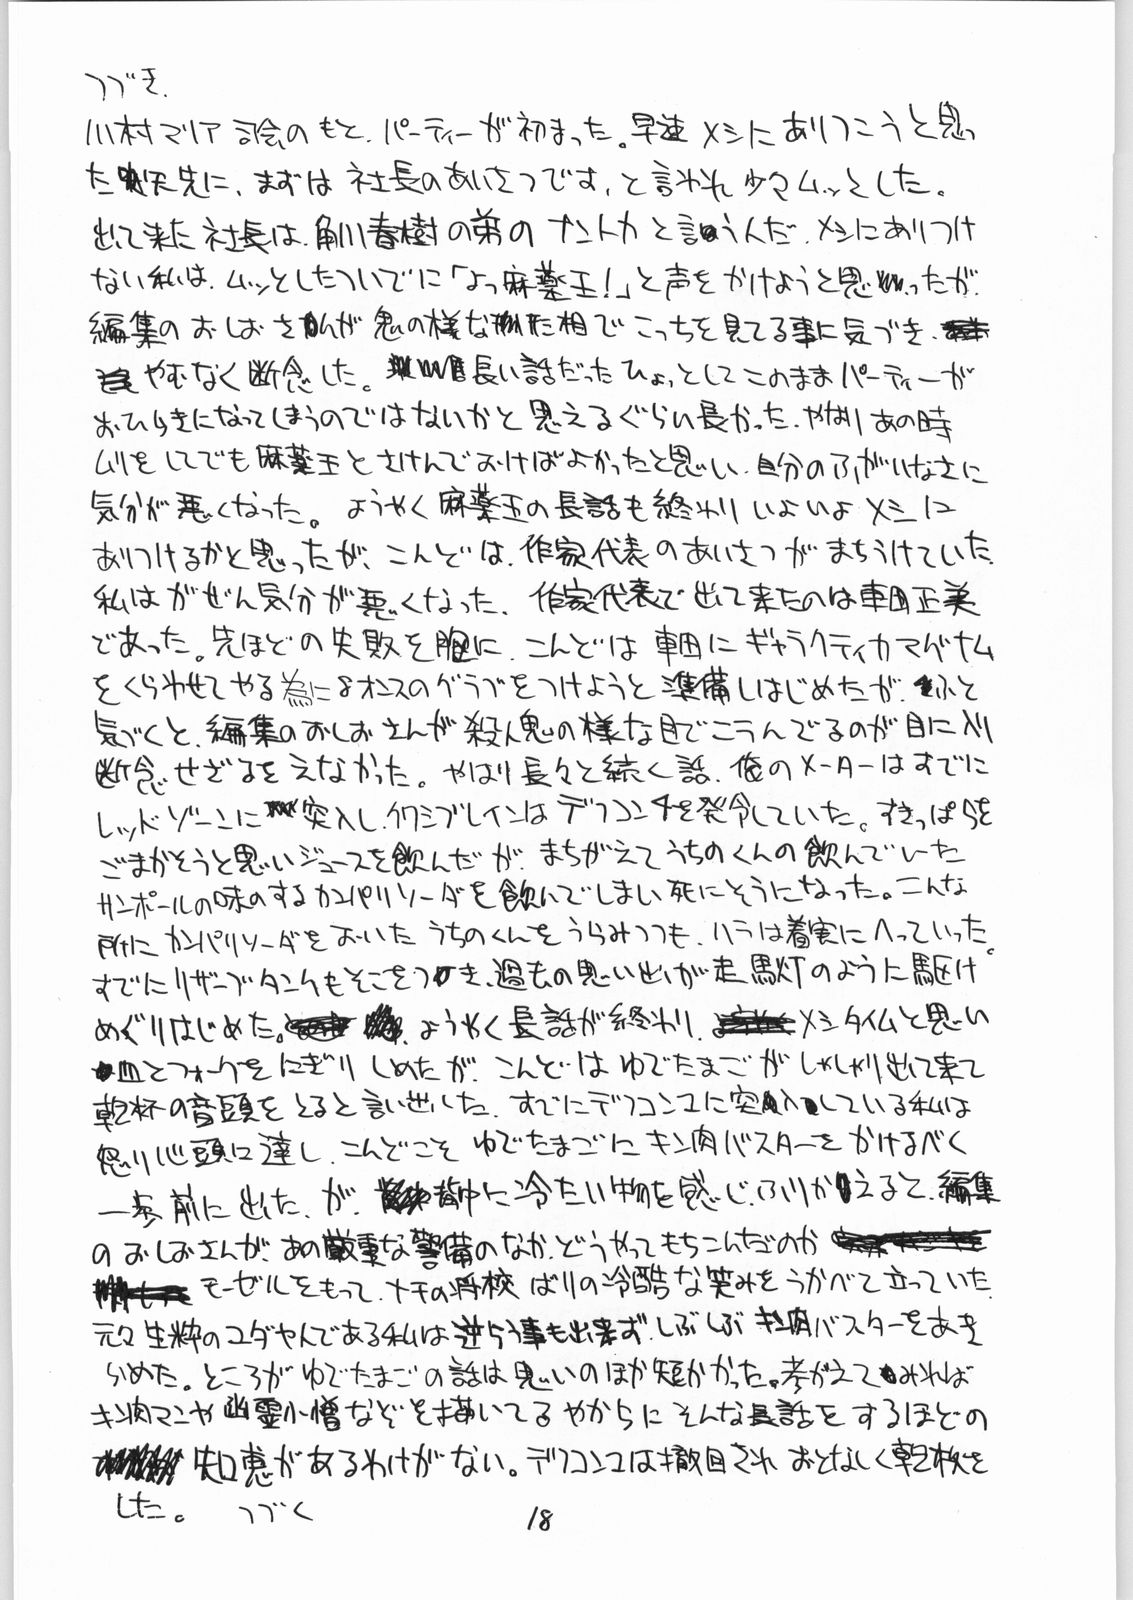 つづき.
川村マリア司会のもと、パーティーが初まった。早速メシにありつこうと思っ
た矢先に、まずは社長のあいさつです、と言われ少々ムッとした。
出て来た社長は、角川春樹の弟のナントカと言うんだ、メシにありつけ
ない私は、ムッとしたついでに「よっ麻薬王!」と声をかけようと思ったが、
編集のおしおさんが鬼の様な形相でこっちを見てる事に気づき、
やむなく断念した。長い話だったひょっとしてこのままパーティーが
おひらきになってしまうのではないかと思えるぐらい長かった、やはりあの時
ムリをしてでも麻薬王とさけんでおけばよかったと思い、自分のふがいなさに
気分が悪くなった。ようやく麻薬王の長話も終わりいよいよメシに
ありつけるかと思ったが、こんどは、作家代表のあいさつがまちうけていた
私はがぜん気分が悪くなった、作家代表で出て来たのは車田正美
であった。先ほどの失敗を胸に、こんどは車田にギャラクティカマグナム
をくらわせてやる為に8オンスのグラブをつけようと準備しはじめたが、ふと
気づくと、編集のおしおさんが殺人鬼の様な目でこうんでるのが目に入り
断念せざるをえなかった。やはり長々と続く話、俺のメーターはすでに
レッドゾーンに突入し、クワシブレインはデフコン4を発令していた。すきっぱらを
ごまかそうと思いジュースを飲んだが、まちがえてうちのくんの飲んでいた
サンポールの味のするカンパリソーダを飲んでしまい死にそうになった。こんな
所にカンパリソーダをおいたうちのくんをうらみつつも、ハラは着実にへっていった。
すでにリザーブタンクもそこをつき、過去の思い出が走馬灯のように駆け
めぐりはじめた。ようやく長話が終わり、メシタイムと思い
皿とフォークをにぎりしめたが、こんどはゆでたまごがしゃしゃり出て来て
乾杯の音頭をとると言い出した、すでにデフコン2に突入している私は
怒り心頭に達し、こんどこそゆでたまごにキン肉バスターをかけるべく
一歩前に出た、が、背中に冷たい物を感じ、ふりかえると、編集
のおしおさんが、あの厳重な警備のなか、どうやってもちこんだのか
モーゼルをもって、ナチの将校ばりの冷酷な笑みをうかべて立っていた
元々生粋のユダヤ人である私は逆らう事も出来ず、しぶしぶキン肉バスターをあき
らめた。ところがゆでたまごの話は思いのほか短かかった。考がえてみれば
キン肉マンや幽霊小僧などを描いてるやからにそんな長話をするほどの
知恵があるわけがない。デフコン2は撤回されおとなしく乾杯を
した。　つづく
18